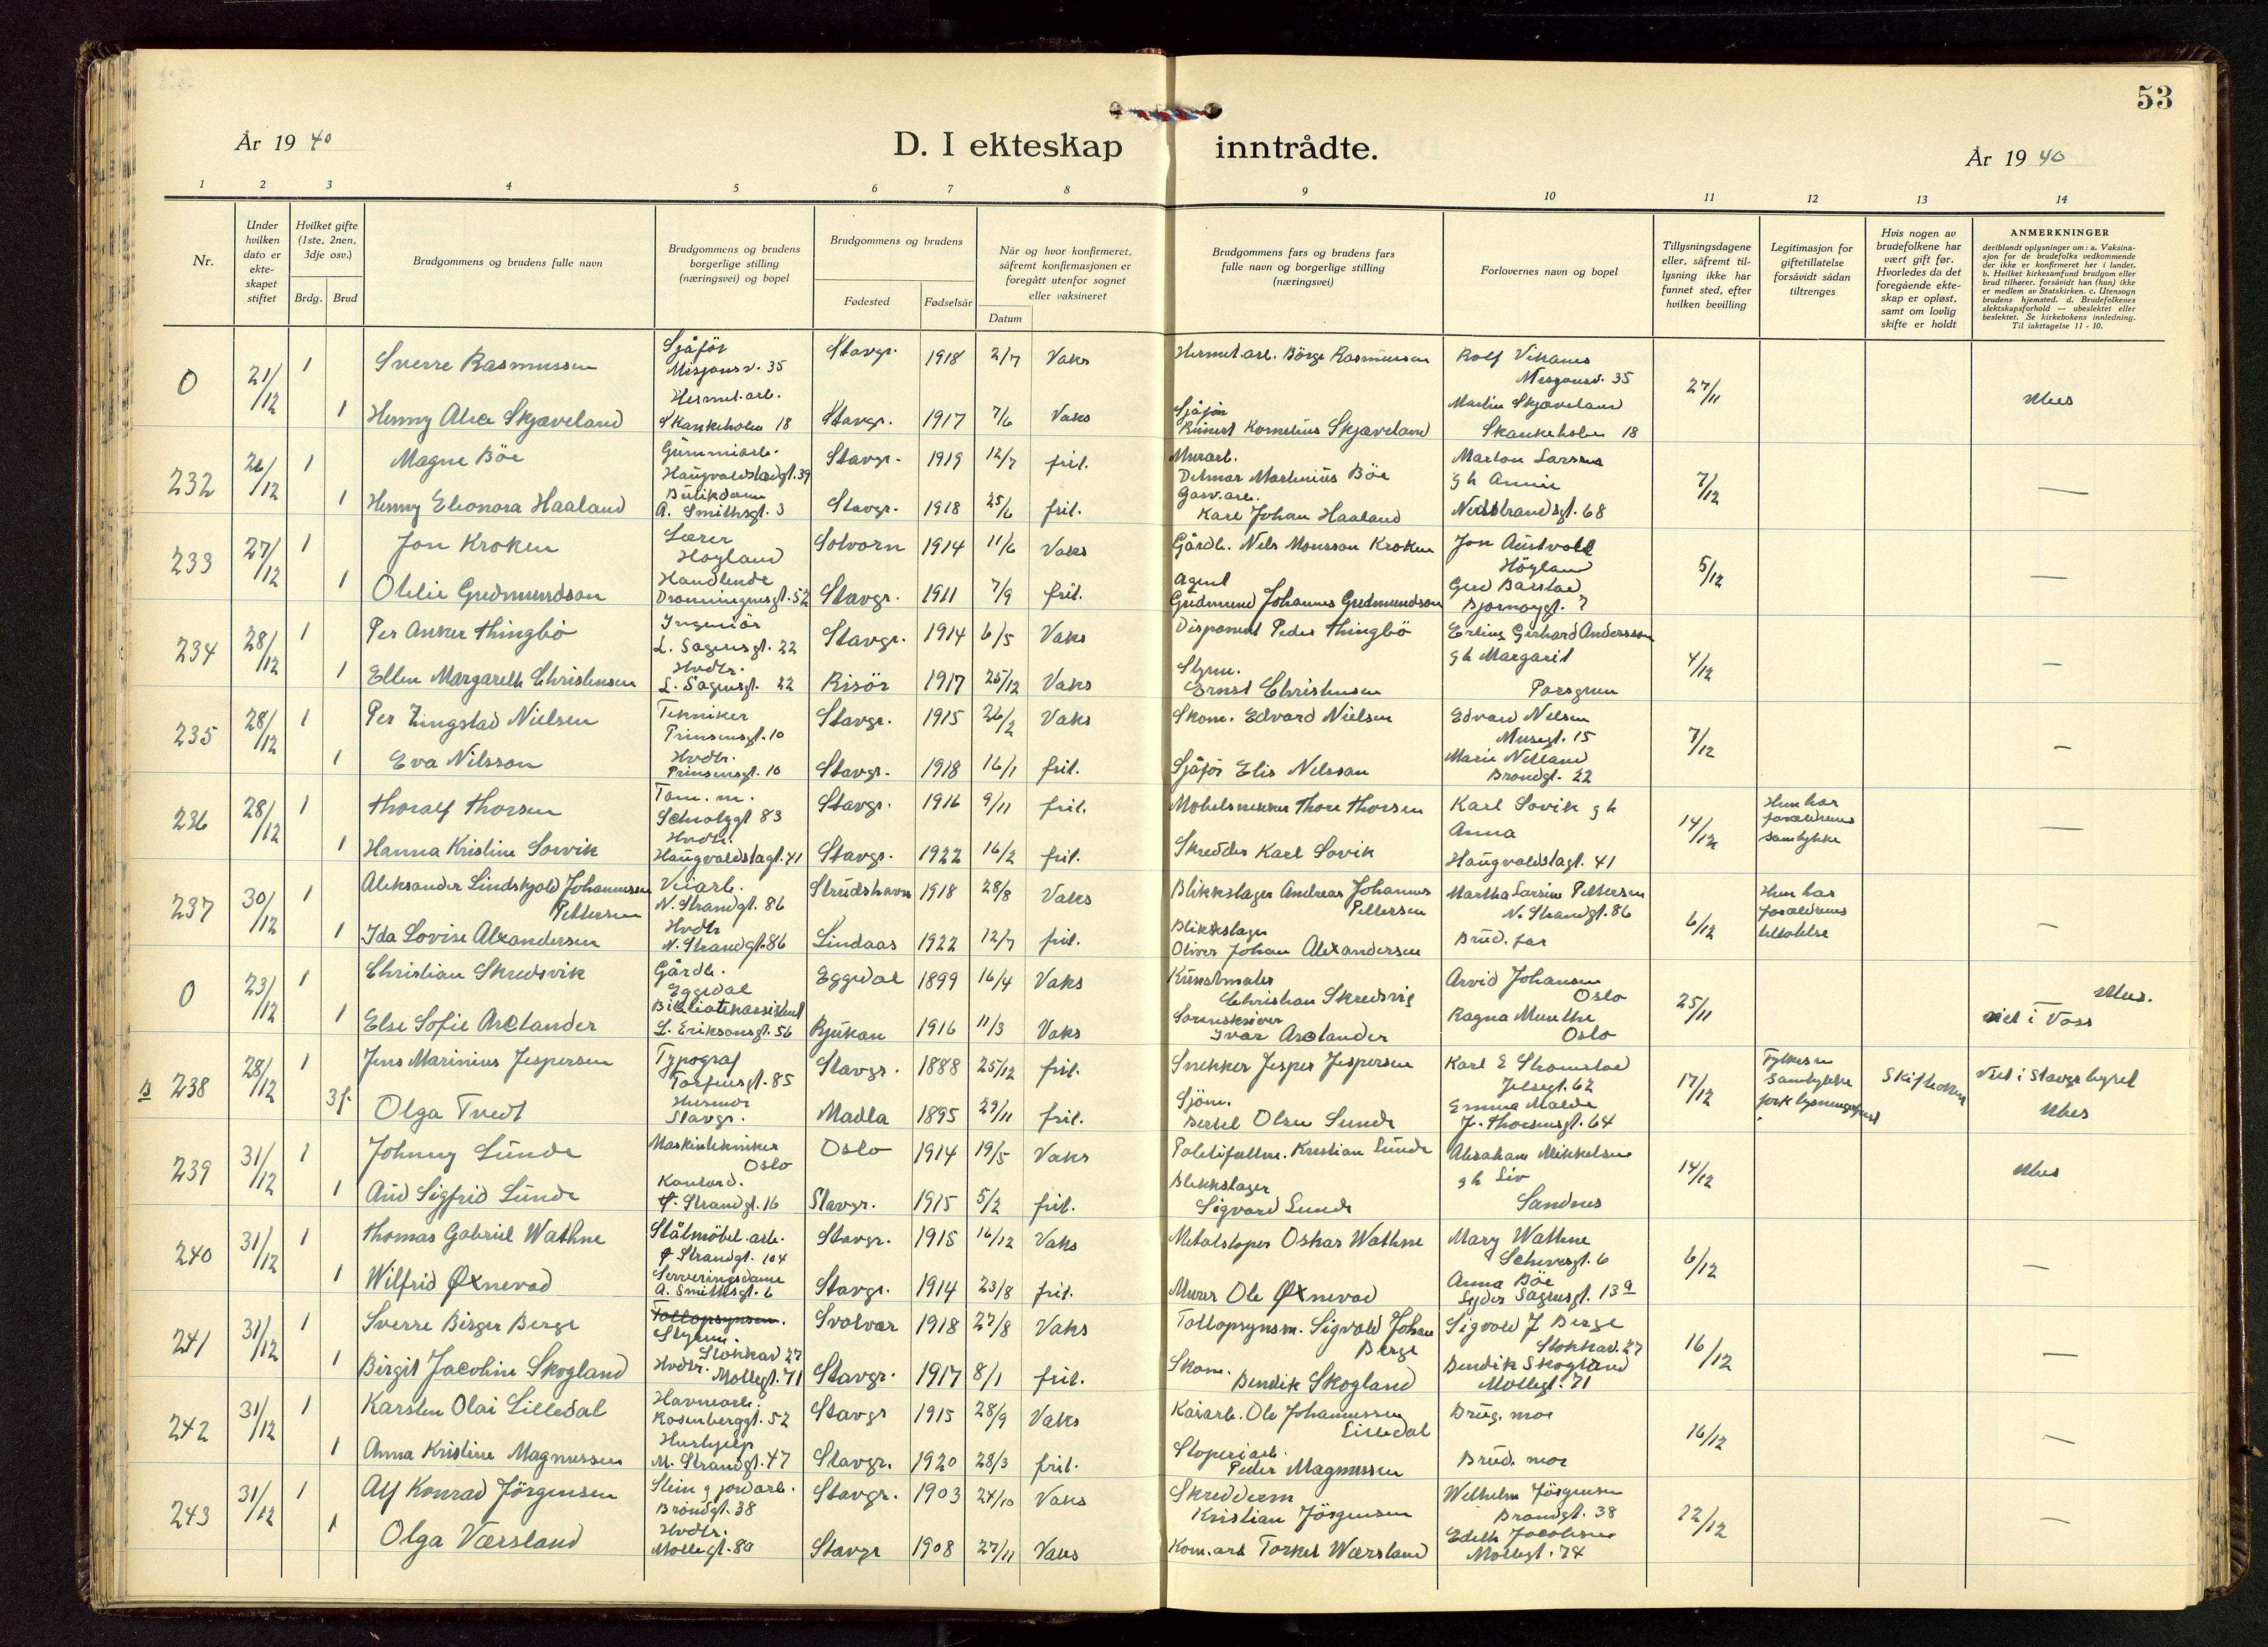 53
År 19 40
D. I ekteskap inntrådte.
År 19 40
1 2 3 4 5 6 7 8 9 10 11 12 13 14
Nr.
Under hvilken dato er ekte-skapet stiftet
Hvilket gifte (1ste, 2nen, 3dje osv.)
Brdg. Brud
Brudgommens og brudens fulle navn
Brudgommens og brudens borgerlige stilling (næringsvei) og bopel
Brudgommens og brudens
Fødested Fødselsår
Når og hvor konfirmeret, såfremt konfirmasjonen er foregått utenfor sognet eller vaksineret
Datum
Brudgommens fars og brudens fars fulle navn og borgerlige stilling (næringsvei)
Forlovernes navn og bopel
Tillysningsdagene eller, såfremt til-lysning ikke har funnet sted, efter hvilken bevilling
Legitimasjon for giftetillatelse forsåvidt sådan tiltrenges
Hvis nogen av brudefolkene har vært gift før. Hvorledes da det foregående ekte-skap er opløst, samt om lovlig skifte er holdt
ANMERKNINGER
deriblandt oplysninger om: a. Vaksina-sjon for de brudefolks vedkommende der ikke er konfirmeret her i landet. b. Hvilket kirkesamfund brudgom eller brud tilhører, forsåvidt han (hun) ikke er medlem av Statskirken. c. Utensogn brudens hjemsted. d. Brudefolkenes slektskapsforhold — ubeslektet eller beslektet. Se kirkebokens innledning. Til iakttagelse 11 - 10.
0 21/12 1 Sverre Rasmussen Sjåför Misjonsv. 35 Stavgr. 1918 2/7 Vaks Hermet.arb. Börge Rasmussen Rolf Vikanes Misjonsv. 35 27/11
1 Henny Alice Skjæveland Hermet.arb. Skankeholen 18 Stavgr. 1917 7/6 Vaks Sjåför Kornelius Skjæveland Martin Skjæveland Skankeholen 18
232 26/12 1 Magne Böe Gummiarb. Haugvaldstadgt. 39 Stavgr. 1919 12/7 fril. Murarb. Detmar Martinius Böe Marton Larsen gh Annie 7/12 —
1 Henny Eleonora Haaland Butikdame A. Smithsgt. 3 Stavgr. 1918 25/6 fril. Gasv.arb. Karl Johan Haaland Nedstrandsgt. 68
233 27/12 1 Jon Kroken Lærer Høyland Solvorn 1914 11/6 Vaks Gårdb. Nils Monsson Kroken Jon Austvoll Höyland 5/12 —
1 Otilie Gudmundson Handlende Dronningensgt. 52 Stavgr. 1911 7/9 fril. Agent Gudmund Johannes Gudmundson Gerd Barstad Bjornøygt. 7
234 28/12 1 Per Anker Thingbö Ingeniör L. Sagensgt. 22 Stavgr. 1914 6/5 Vaks Disponent Peder Thingbö Erling Gerhard Anderssen gh Margarit 4/12 —
1 Ellen Margareth Christensen Hvdtr. L. Sagensgt. 22 Risör 1917 25/12 Vaks Styrm. Ernst Christensen Porsgrun
235 28/12 1 Per Zingstad Nielsen Tekniker Prinsensgt. 10 Stavgr. 1915 26/2 Vaks Skom. Edvard Nielsen Edvard Nilsen Musegt. 15 7/12 —
1 Eva Nilsson Hvdtr. Prinsensgt. 10 Stavgr. 1918 16/1 fril. Sjåför Elis Nilsson Marie Netland Brøndgt. 22
236 28/12 1 Thoralf Thorsen Tom. m. 83 Stavgr. 1916 9/11 fril. Møbelsnekker Thore Thorsen Karl Sovik gh Anna 14/12 Hun har foreldrenes samtykke —
1 Hanna Kristine Sovik Hvdtr. Haugvaldstagt. 41 Stavgr. 1922 16/2 fril. Skredder Karl Sovik Haugvaldstagt. 41
237 30/12 1 Aleksander Lindskjold Johannessen Pettersen Veiarb. N. Strandgt. 86 Strudshavn 1918 28/8 Vaks Blikkslager Andreas Johannes Pettersen Martha Larsine Pettersen N. Strandgt. 86 6/12 Hun har foreldrenes tillatelse —
1 Ida Lovise Alexandersen Hvdtr N. Strandgt. 86 Lindaas 1922 12/7 fril. Blikkslager Oliver Johan Alexandersen Brud. far
0 23/12 1 Christian Skredsvik Gårdb. Eggedal Eggedal 1899 16/4 Vaks Kunstmaler Christian Skredsvig Arvid Johansen Oslo 25/11
1 Else Sofie Arctander Bibliotekassistent L. Eriksonsgt. 56 Rjukan 1916 11/3 Vaks Sorenskriver Ivar Arctander Ragna Munthe Oslo viet i Voss
B 238 28/12 1 Jens Marinius Jespersen Typograf Torfeusgt. 85 Stavgr. 1888 25/12 fril. Snekker Jesper Jespersen Karl E Stromstad Jelsegt. 62 17/12 Fylkesm samtykke Viet i Stavgr byret
3 f. Olga Tvedt Husmor Stavgr. Madla 1895 29/11 fril. Sjöm. Bertel Olsen Sunde Emma Malde J. Thorsensgt. 64
239 31/12 1 Johnny Lunde Maskintekniker Oslo Oslo 1914 19/5 Vaks Politifullm. Kristian Lunde Abraham Mikkelsen gh Liv 14/12
1 Aud Sigfrid Lunde Kontord. Ø. Strandgt. 16 Stavgr. 1915 5/2 fril. Blikkslager Sigvard Lunde Sandnes
240 31/12 1 Thomas Gabriel Wathne Stålmöbel.arb. Ø Strandgt. 104 Stavgr. 1915 16/12 Vaks Metalstøper Oskar Wathne Mary Wathne 6/12 —
1 Wilfrid Øxnevad Serveringsdame A. Smithsgt. 6 Stavgr. 1914 23/8 fril. Murer Ole Øxnevad Anna Böe Lyder Sagensgt. 13a
241 31/12 1 Sverre Birger Berge Tollopsynsm. Styrm. Stokkav 27 Svolvær 1918 27/8 Vaks Tollopsynsm. Sigvald Johan Berge Sigvald J Berge Stokkav. 27 16/12 —
1 Birgit Jacobine Skogland Hvdtr. Møllegt. 71 Stavgr. 1917 8/1 fril. Skom. Bendik Skogland Bendik Skogland Møllegt. 71
242 31/12 1 Karsten Olai Lilledal Havnearb. Rosenberggt. 52 Stavgr 1915 28/9 Vaks Kaiarb. Ole Johannessen Lilledal Brug. mor 16/12 —
1 Anna Kristine Magnussen Hushjelp N. Strandgt. 47 Stavgr. 1920 28/3 fril. Støperiarb. Peder Magnussen Brud. mor
243 31/12 1 Alf Konrad Jörgensen Stein g jordarb. Brøndgt. 38 Stavgr. 1903 24/10 Vaks Skredderm Kristian Jörgensen Wilhelm Jörgensen Brøndgt. 38 22/12 —
1 Olga Værsland Hvdtr. Møllegt. 80 Stavgr 1908 27/11 Vaks Kom.arb Torkel Wærsland Edith Jacobsen Møllegt. 74